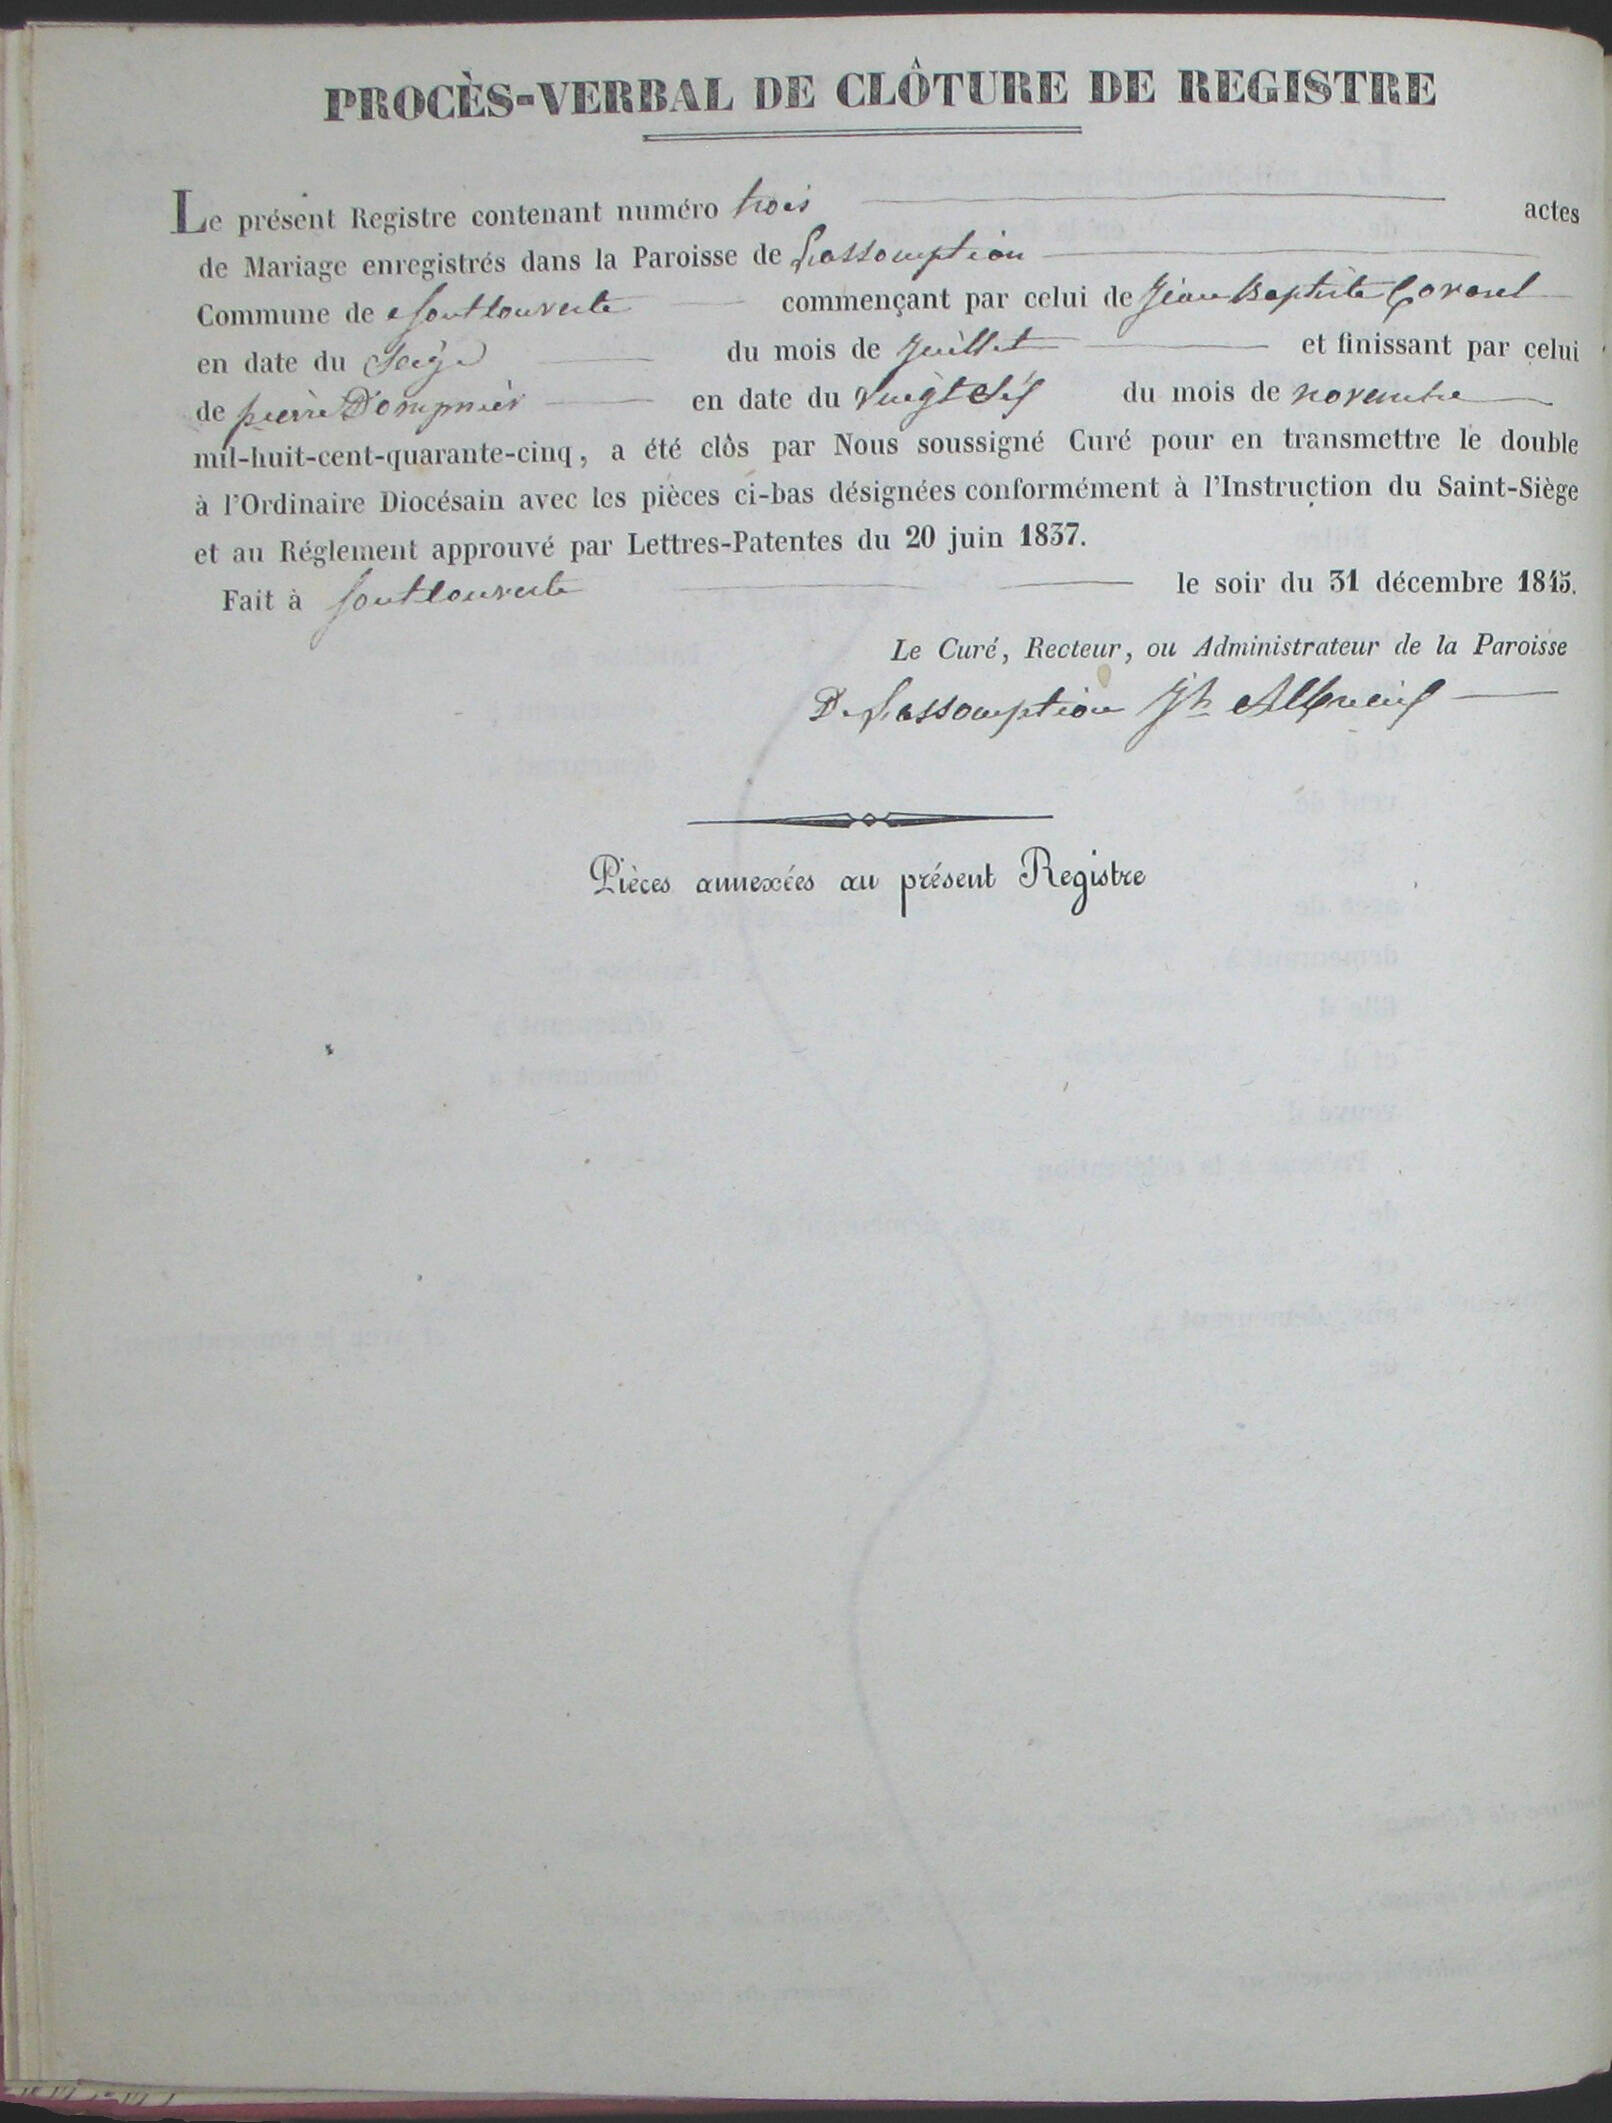 PROCÈS-VERBAL DE CLÔTURE DE REGISTRE
Le présent Registre contenant numéro trois actes
de Mariage enregistrés dans la Paroisse de Lassomption
Commune de commençant par celui de Jean Baptiste Covarel
en date du Seize du mois de Juillet et finissant par celui
de pierre Dompnier en date du vingt Six du mois de novembre
mil-huit-cent-quarante-cinq, a été clôs par Nous soussigné Curé pour en transmettre le double
à l'Ordinaire Diocésain avec les pièces ci-bas désignées conformément à l'Instruction du Saint-Siège
et au Réglement approuvé par Lettres-Patentes du 20 juin 1837.
Fait à le soir du 31 décembre 1845.
Le Curé, Recteur, ou Administrateur de la Paroisse
De Lassomption Jh
Pièces annexées au présent Registre